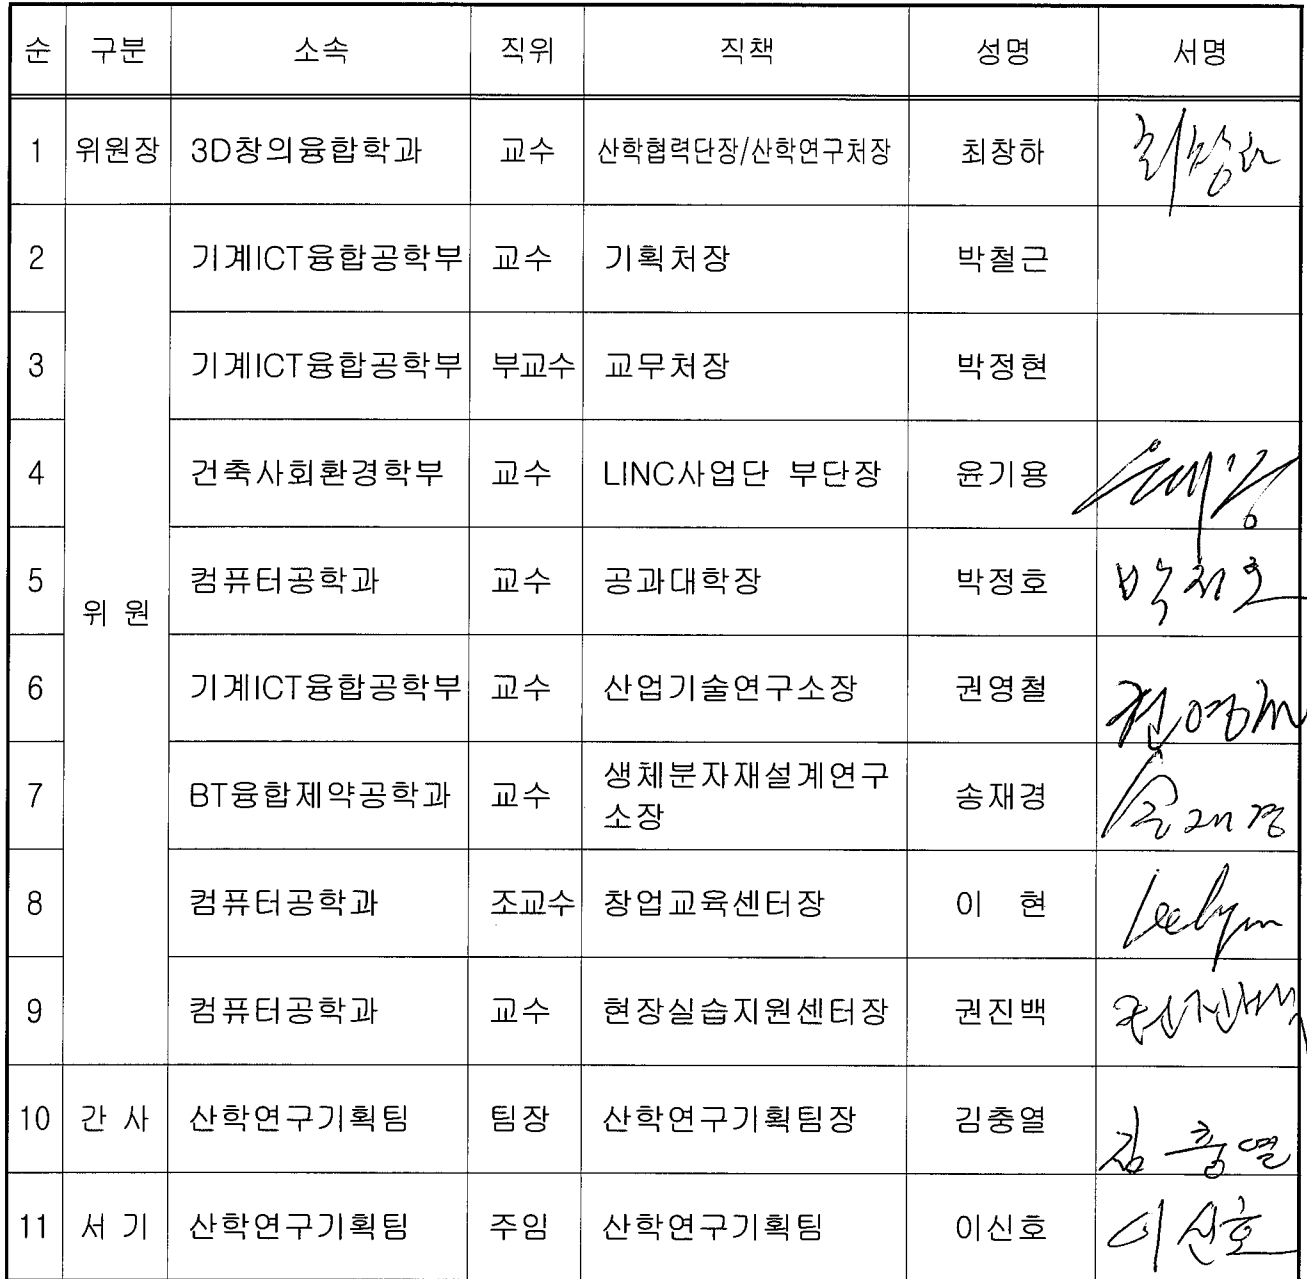 순 구분 소속 직위 직책 성명 서명
1 위원장 3D창의융합학과 교수 산학협력단장/산학연구처장 최창하 최창하
2 기계ICT융합공학부 교수 기획처장 박철근
3 기계ICT융합공학부 부교수 교무처장 박정현
4 건축사회환경학부 교수 LINC사업단 부단장 윤기용
5 컴퓨터공학과 교수 공과대학장 박정호 박정호
위 원
6 기계ICT융합공학부 교수 산업기술연구소장 권영철 권영철
7 BT융합제약공학과 교수 생체분자재설계연구
소장 송재경 송재경
8 컴퓨터공학과 조교수 창업교육센터장 이 현
9 컴퓨터공학과 교수 현장실습지원센터장 권진백 권진백
10 간 사 산학연구기획팀 팀장 산학연구기획팀장 김충열 김충열
11 서 기 산학연구기획팀 주임 산학연구기획팀 이신호 이신호